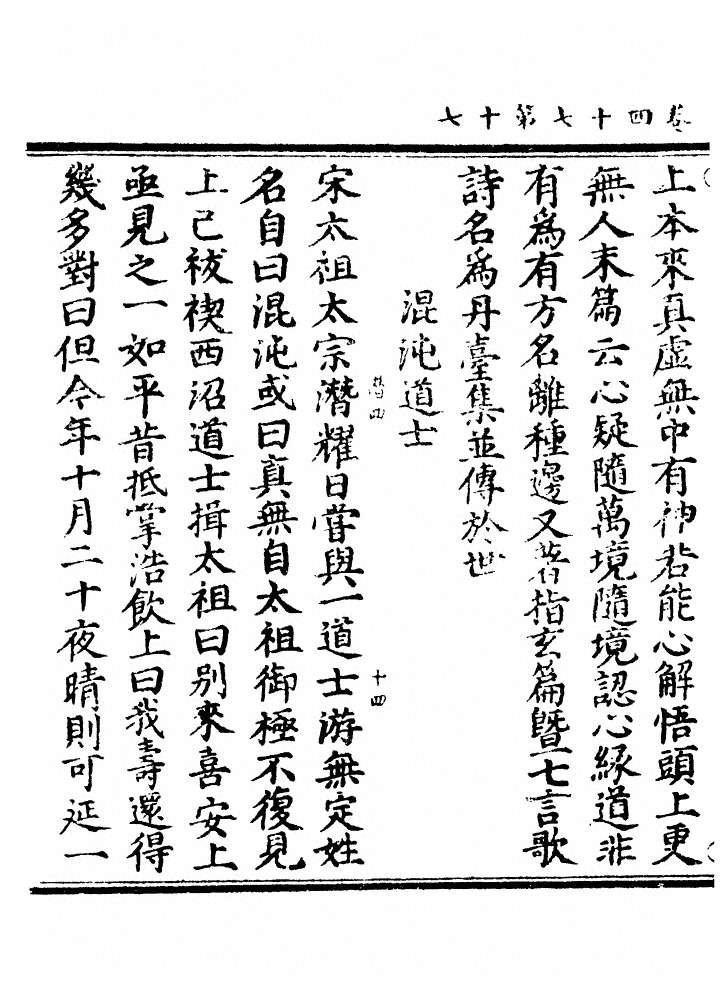 卷四十七第十七
上本來真虛無中有神若能心解悟頭上更
無人末篇云心疑隨萬境隨境認心緣道非
有爲有方名離種邊又著指玄篇暨七言歌
詩名爲丹臺集並傳於世
混沌道士
宋太祖太宗潛耀日嘗與一道士游無定姓
名自曰混沌或曰真無自太祖御極不復見
上已祓禊西沼道士揖太祖曰別來喜安上
亟見之一如平昔抵掌浩飲上曰我壽還得
幾多對曰但今年十月二十夜晴則可延一
十四